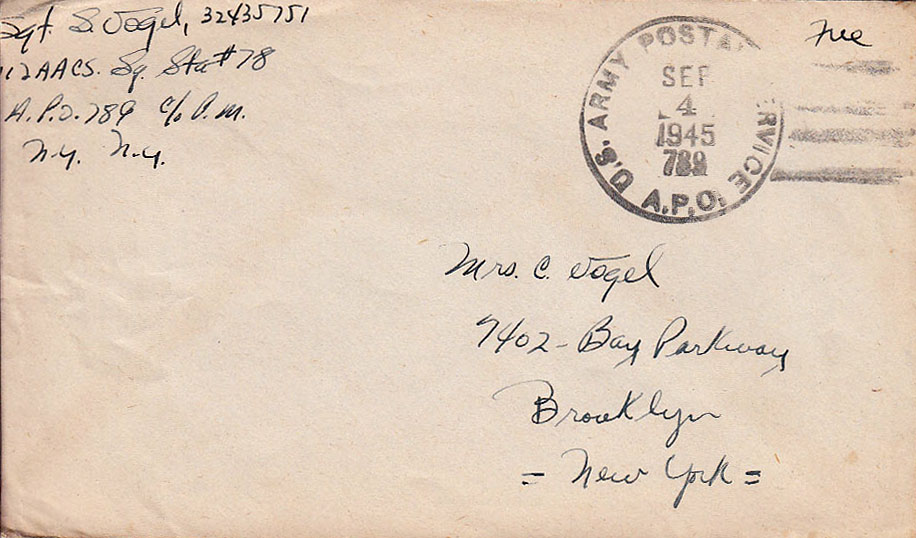 Sgt. S. Vogel, 32435751
112 AACS. Sq. Sta #78
A.P.O. 789 c/o P.M.
N.Y. N.Y.
Free
U.S. ARMY POSTAL SERVICE
SEP
4
1945
789
A.P.O.
Mrs. C. Vogel
7402 - Bay Parkway
Brooklyn
= New York =